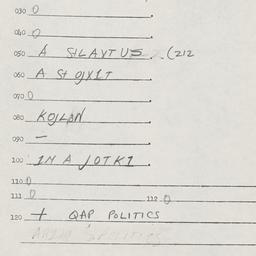 030 0
040 0
050 A SILAYTUS. (212
060 A St OJXIT
070 0
080 KOJLAN
090 —
100 IN A JOTKI
110 0
111 0 112 0
120 + QAP POLITICS